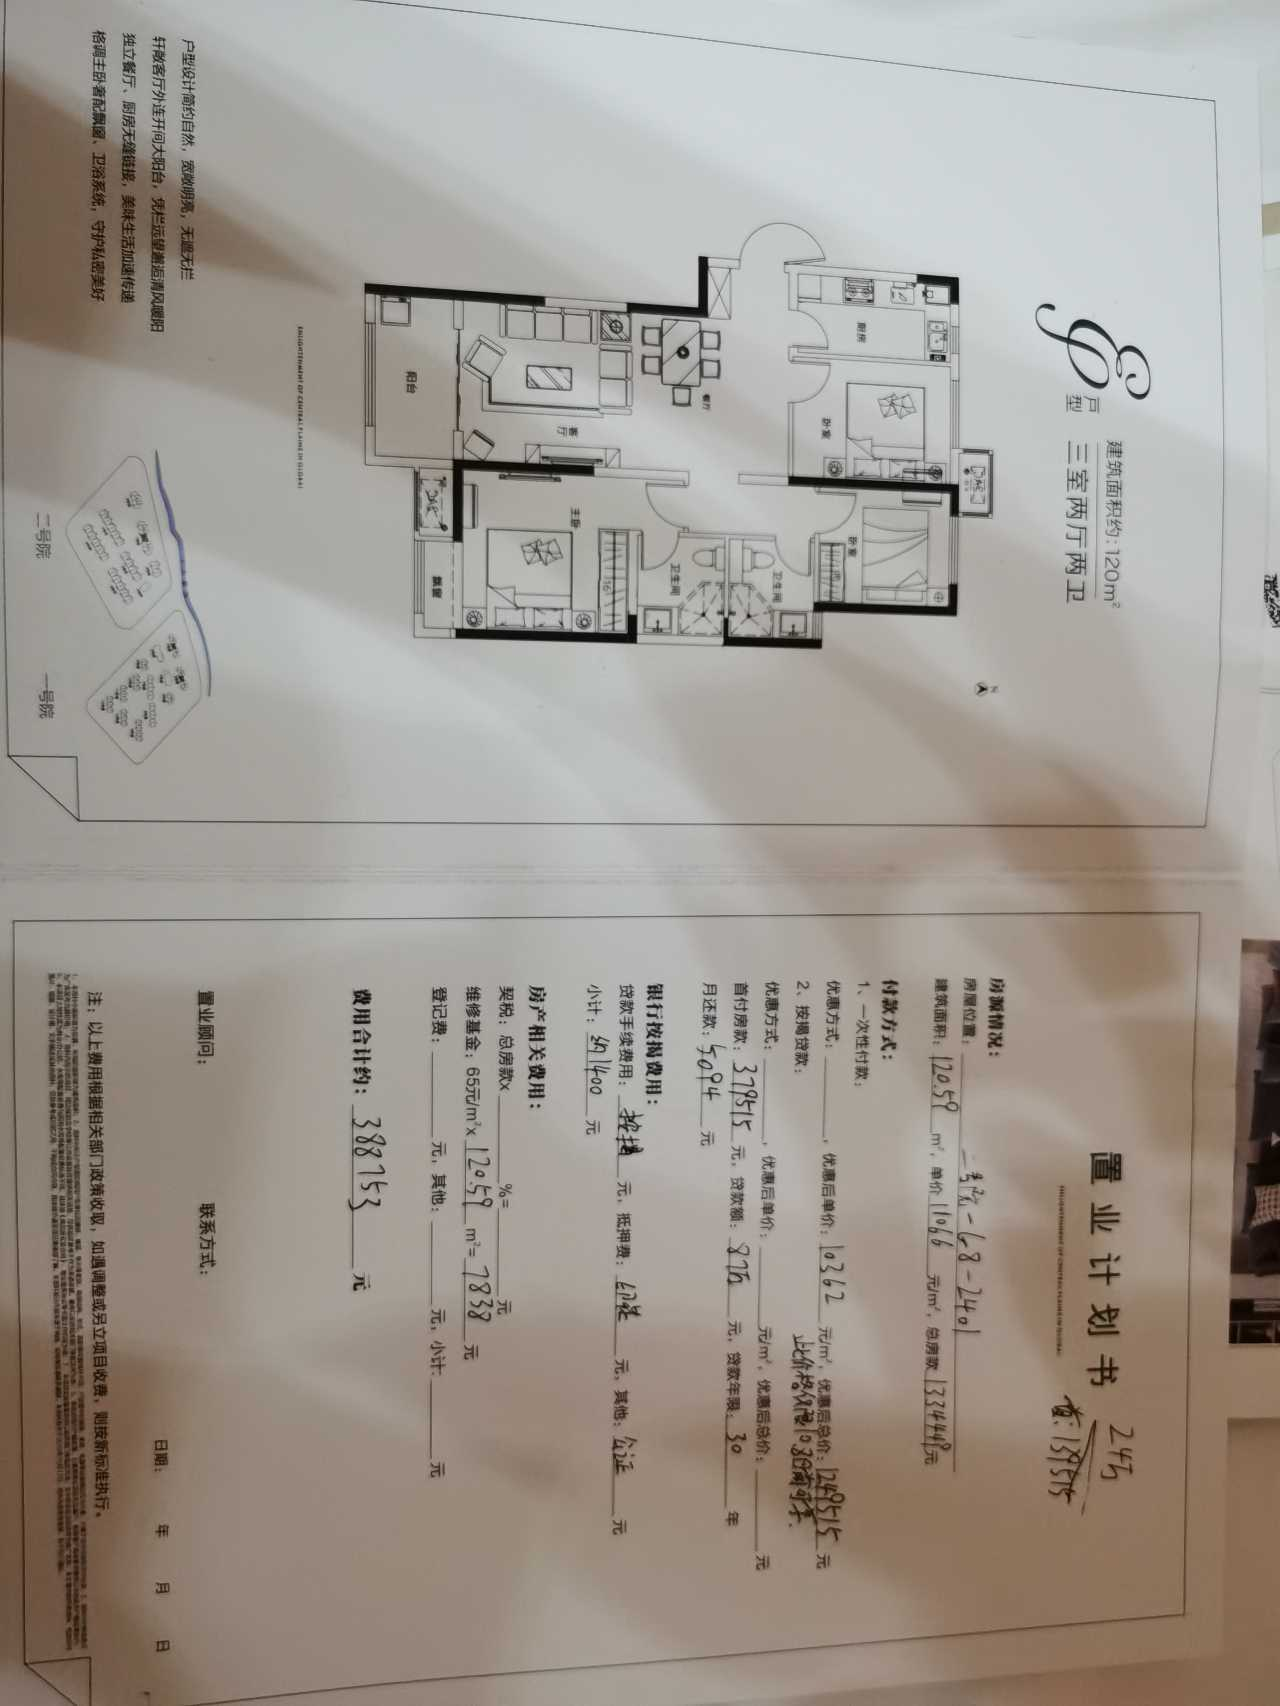 E
户型
建筑面积约：120m²
三室两厅两卫
N
厨房
卧室
餐厅
卧室
客厅
卫生间
卫生间
主卧
阳台
飘窗
ENLIGHTENMENT OF CENTRAL PLAINS IN GLOBAL
户型设计简约自然，宽敞明亮，无遮无拦
轩敞客厅外连开间大阳台，凭栏远望邂逅清风暖阳
独立餐厅、厨房无缝链接，美味生活加速传递
格调主卧奢配飘窗、卫浴系统，守护私密美好
二号院
一号院
置业计划书
ENLIGHTENMENT OF CENTRAL PLAINS IN GLOBAL
24万
首：139515
房源情况：
房屋位置：二号院-68-2401
建筑面积：120.59 m²，单价 11066 元/m²，总房款 1334449元
付款方式：
1、一次性付款：
优惠方式：，优惠后单价：10362 元/m²，优惠后总价：1249515元
2、按揭贷款：
优惠方式：，优惠后单价：元/m²，优惠后总价：元
首付房款：379515 元，贷款额：87万 元，贷款年限：30 年
月还款：5094 元
银行按揭费用：
贷款手续费用：按揭 元，抵押费：元，其他：公证 元
小计：约1400 元
房产相关费用：
契税：总房款x %= 元
维修基金：65元/m²x 120.59 m²= 7838 元
登记费：元，其他：元，小计：元
费用合计约：388753 元
置业顾问：
联系方式：
日期： 年 月 日
注：以上费用根据相关部门政策收取，如遇调整或另立项目收费，则按新标准执行。